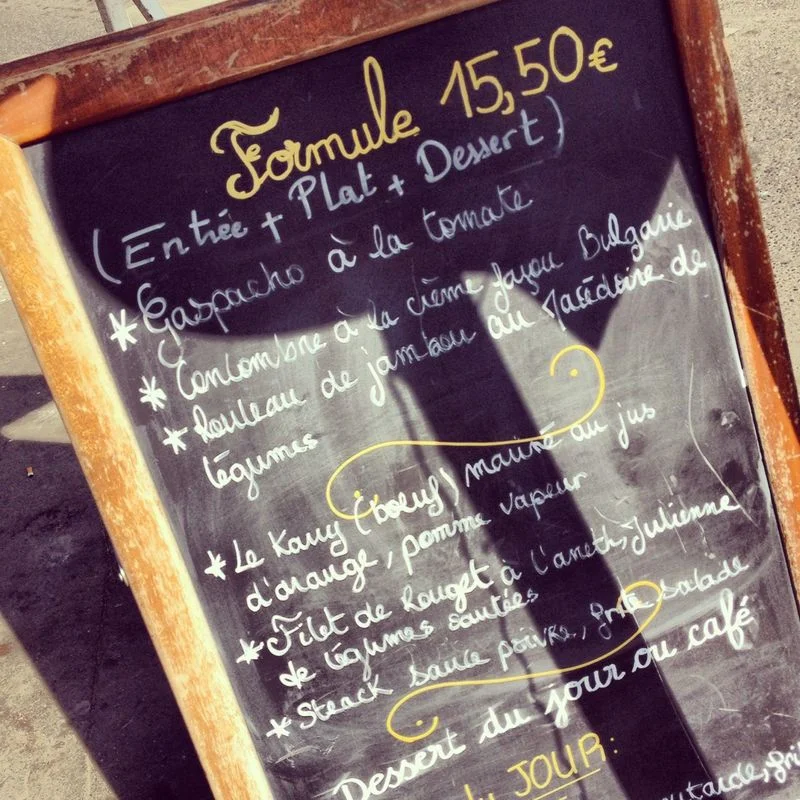 Formule 15,50€
(Entrée + Plat + Dessert)
* Gaspacho à la tomate
* Concombre à la crème façon Bulgarie
* Rouleau de jambon au Macédoire de
légumes
* Le Kany (boeuf) mariné au jus
d'orange, pomme vapeur
* Filet de Rouget à l'aneth, Julienne
de légumes sautées
* Steack sauce poivre, frite salade
Dessert du jour ou café
du JOUR:
moutarde, frit